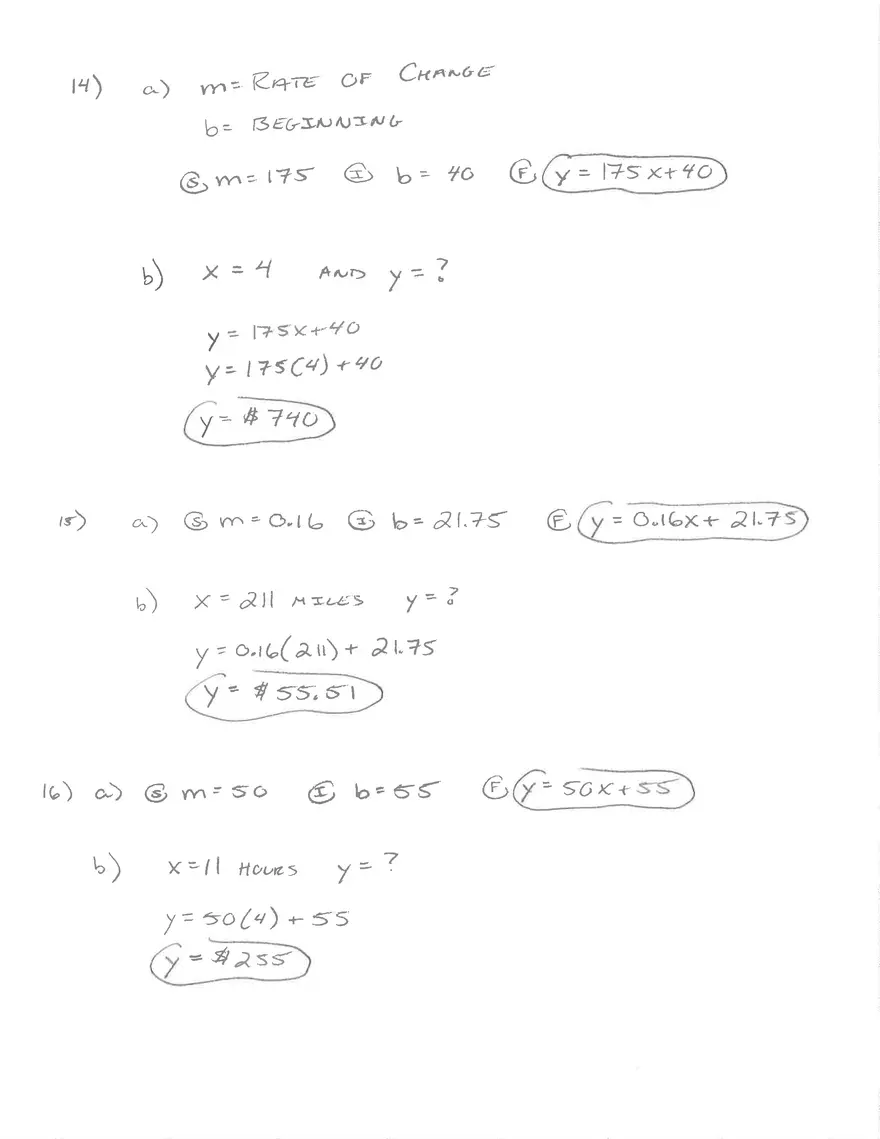 14) a) m = RATE OF CHANGE
b = BEGINNING
Ⓢ m = 175 Ⓘ b = 40 Ⓕ y = 175x + 40
b) x = 4 AND y = ?
y = 175x + 40
y = 175(4) + 40
y = $740
15) a) Ⓢ m = 0.16 Ⓘ b = 21.75 Ⓕ y = 0.16x + 21.75
b) x = 211 MILES y = ?
y = 0.16(211) + 21.75
y = $55.51
16) a) Ⓢ m = 50 Ⓘ b = 55 Ⓕ y = 50x + 55
b) x = 11 HOURS y = ?
y = 50(4) + 55
y = $255